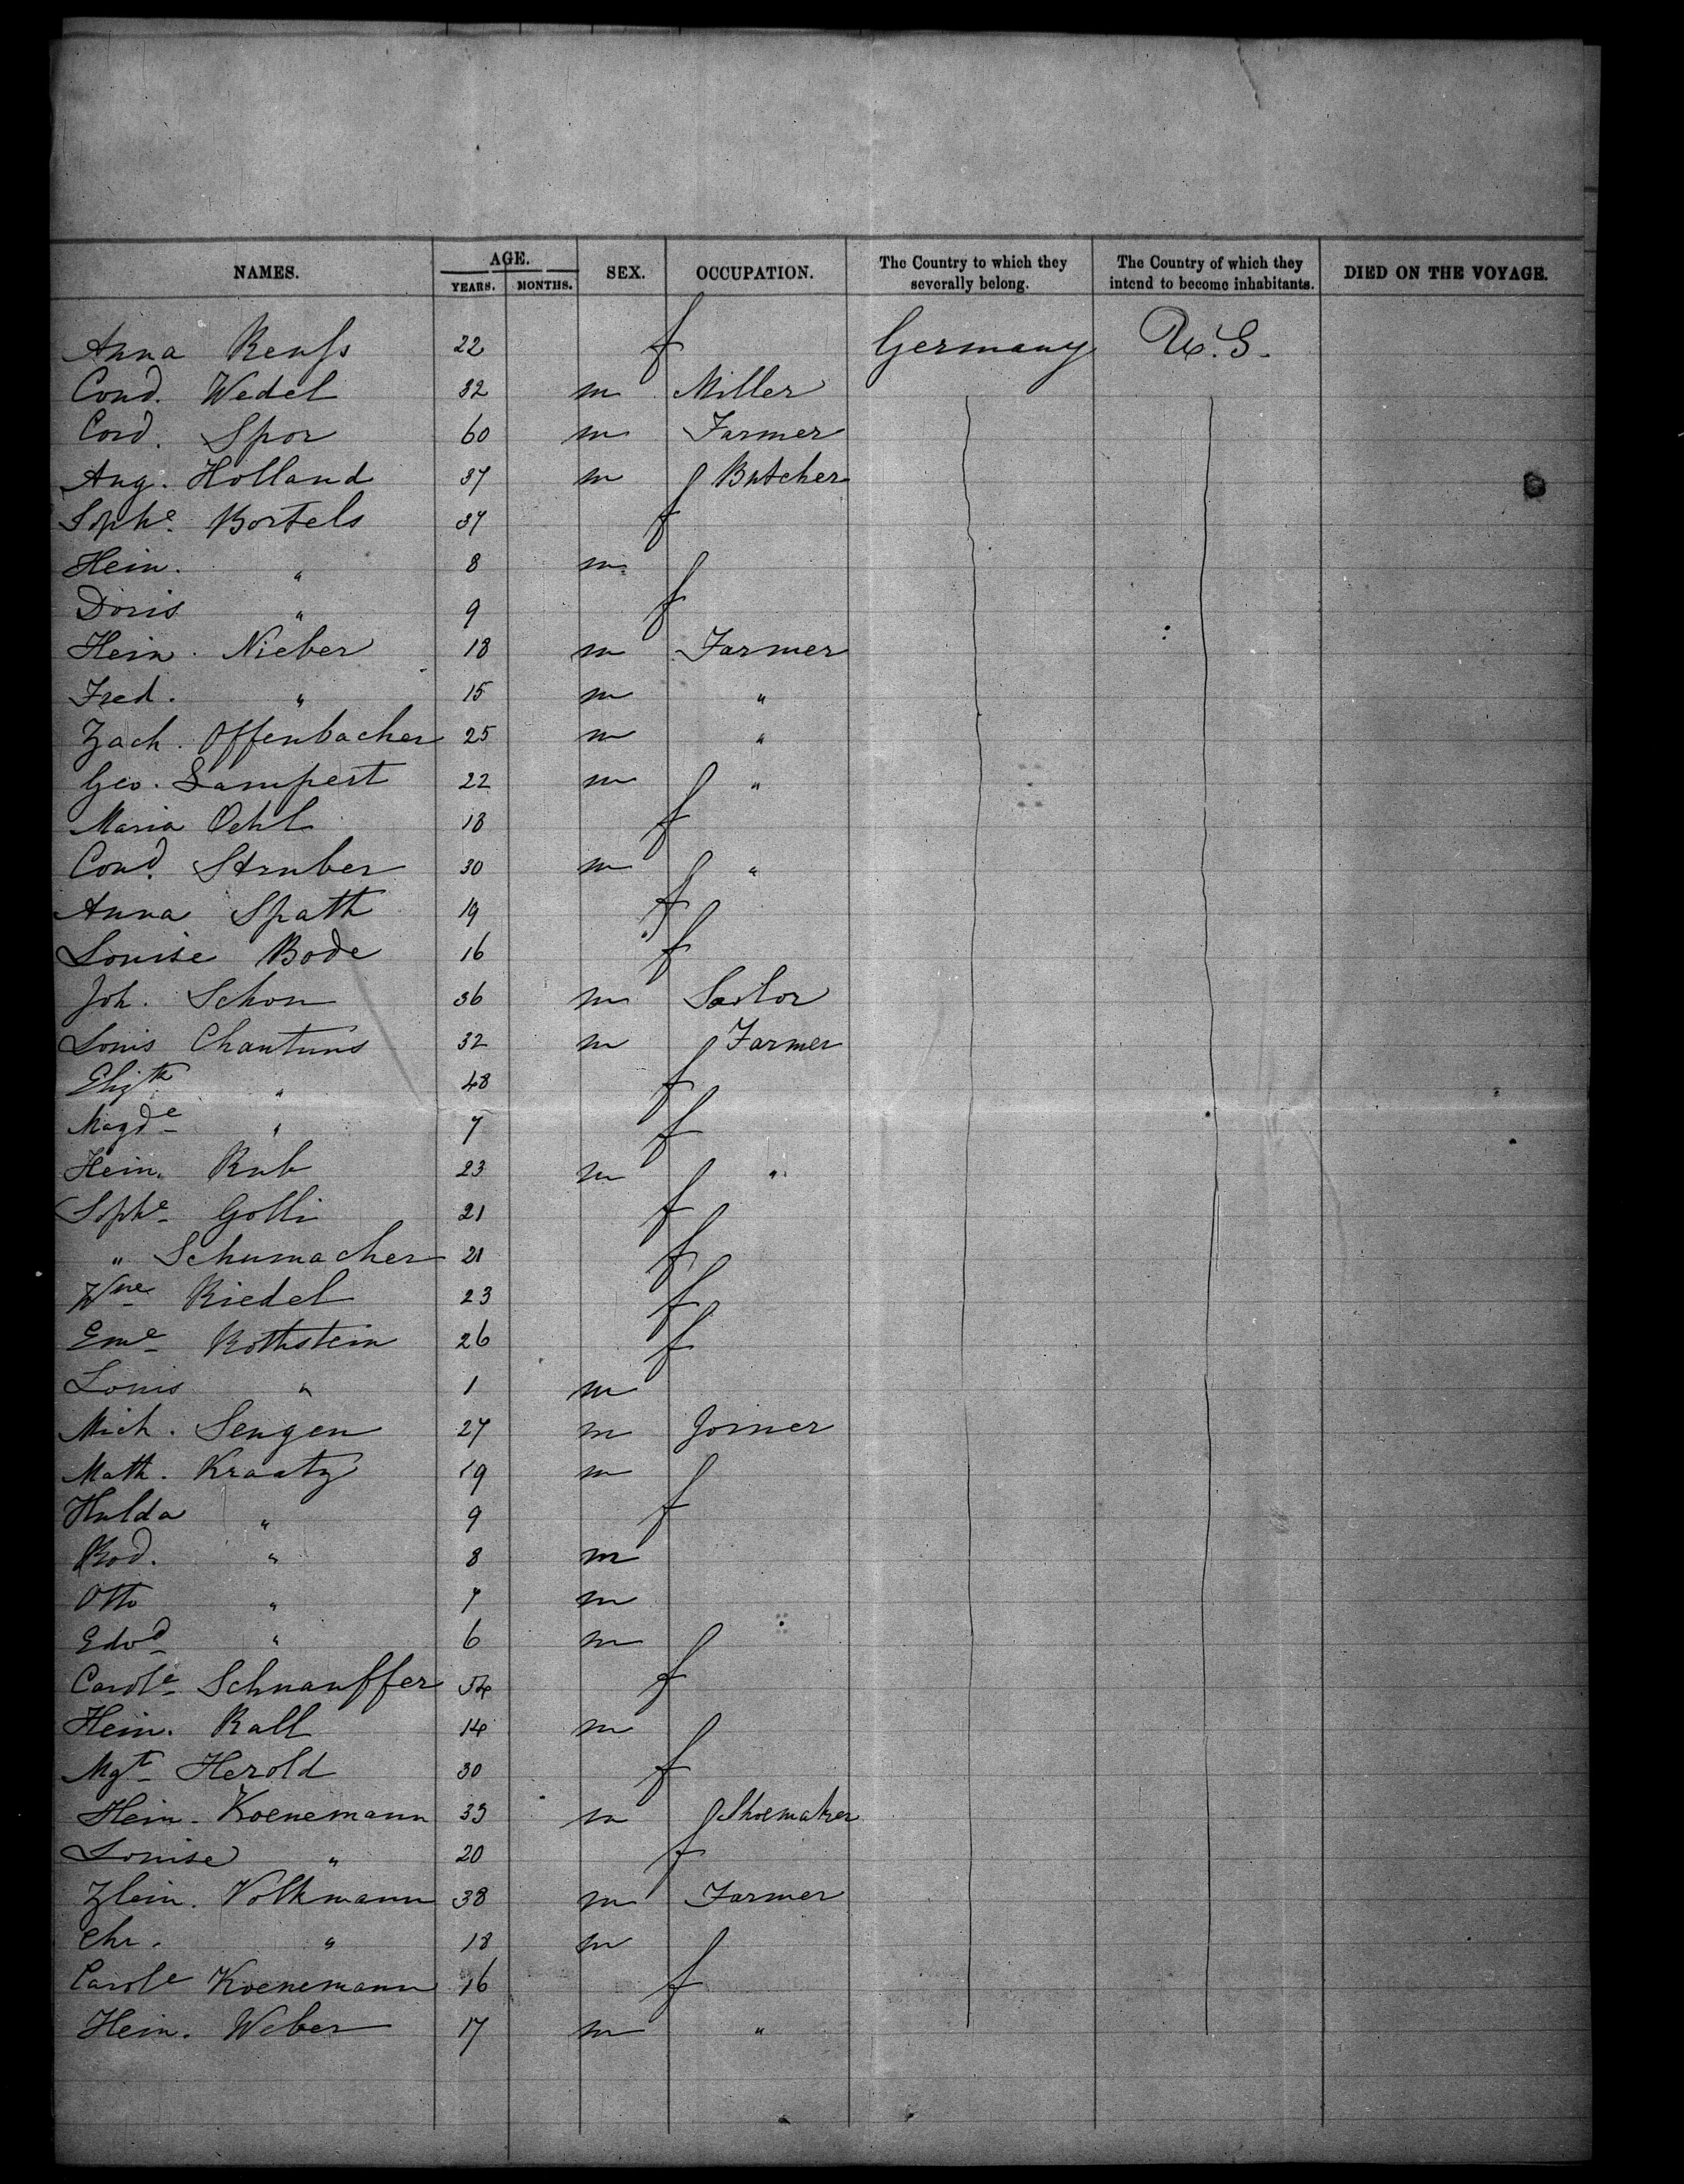 NAMES. AGE. SEX. OCCUPATION. The Country to which they severally belong. The Country of which they intend to become inhabitants. DIED ON THE VOYAGE.
YEARS. MONTHS.
Anna Reufs 22 f Germany U.S.
Cond. Wedel 32 m Miller
Cord. Spor 60 m Farmer
Aug. Holland 37 m Butcher
Sophe Bortels 37 f
Hein. " 8 m
Doris " 9 f
Hein. Nieber 18 m Farmer
Fred. " 15 m "
Zach. Offenbacher 25 m "
Geo. Lampert 22 m "
Maria Oehl 18 f
Cond. Struber 30 m "
Anna Spath 19 f
Louise Bode 16 f
Joh. Schon 36 m
Louis Chantuns 32 m Farmer
Elizth " 48 f
Magde " 7 f
Hein. Rub 23 m "
Sophe Golli 21 f
" Schumacher 21 f
Wne Riedel 23 f
Eme Rothstein 26 f
Louis " 1 m
Mich. Sengen 27 m Joiner
Math. Kraatz 19 m
Hulda " 9 f
Rod. " 8 m
Otto " 7 m
Edwd " 6 m
Carole Schnauffer 54 f
Hein. Rall 14 m
Mgt Herold 30 f
Hein. Koenemann 33 m Shoemaker
Louise " 20 f
Volkmann 38 m Farmer
Chr. " 18 m
Carole Koenemann 16 f
Hein. Weber 17 m "